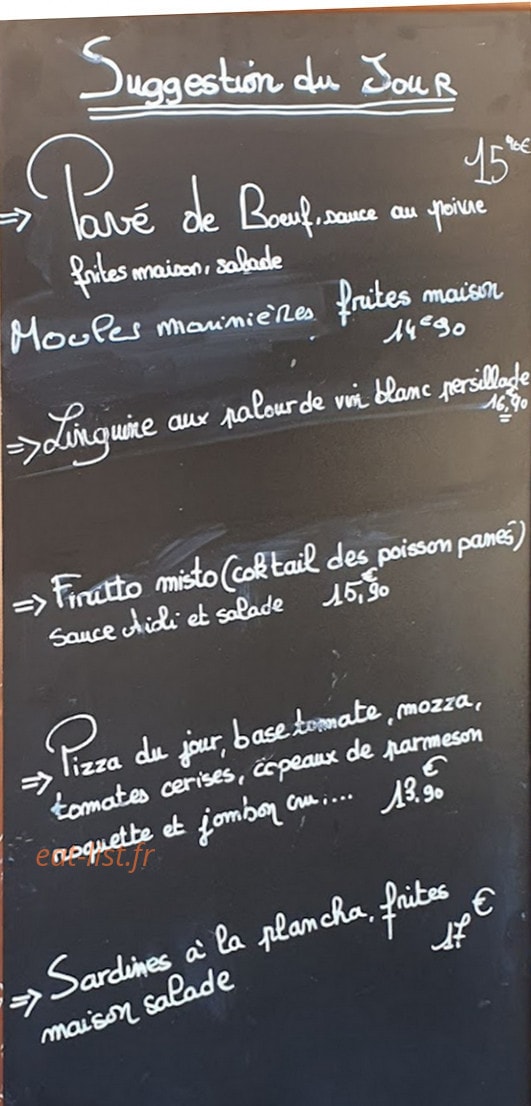 Suggestion du Jour
15 90€
=> Pavé de Boeuf, sauce au poivre
frites maison, salade
Moules marinières frites maison
14€90
=> Linguine aux palourde vin blanc persillade
16,90
=> Frutto misto (coktail des poisson panés)
sauce Aioli et salade 15,90 €
=> Pizza du jour, base tomate, mozza,
tomates cerises, copeaux de parmeson
roquette et jambon cru,... 13.90 €
eat-list.fr
=> Sardines à la plancha, frites
maison salade 17 €